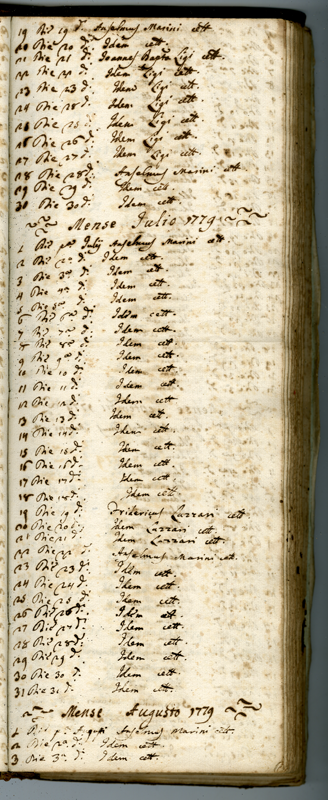 19 Die 19 d. Anselmus Marini cett.
20 Die 20 d. Idem cett.
21 Die 21 d. Joannes Bapta Ligi cett.
22 Die 22 d. Idem Ligi cett.
23 Die 23 d. Idem Ligi cett.
24 Die 24 d. Idem Ligi cett.
25 Die 25 d. Idem Ligi cett.
26 Die 26 d. Idem Ligi cett.
27 Die 27 d. Idem Ligi cett.
28 Die 28 d. Anselmus Marini cett.
29 Die 29 d. Idem cett.
30 Die 30 d. Idem cett.
Mense Julio 1779
1 Die pa July Anselmus Marini cett.
2 Die 2a d. Idem cett.
3 Die 3a d. Idem cett.
4 Die 4a d. Idem cett.
5 Die 5a d. Idem cett.
6 Die 6a d. Idem cett.
7 Die 7a d. Idem cett.
8 Die 8a d. Idem cett.
9 Die 9a d. Idem cett.
10 Die 10 d. Idem cett.
11 Die 11 d. Idem cett.
12 Die 12 d. Idem cett.
13 Die 13 d. Idem cett.
14 Die 14 d. Idem cett.
15 Die 15 d. Idem cett.
16 Die 16 d. Idem cett.
17 Die 17 d. Idem cett.
18 Die 18 d. Idem cett.
19 Die 19 d. Fridericus Lazzari cett.
20 Die 20 d. Idem Lazzari cett.
21 Die 21 d. Idem Lazzari cett.
22 Die 22 d. Anselmus Marini cett.
23 Die 23 d. Idem cett.
24 Die 24 d. Idem cett.
25 Die 25 d. Idem cett.
26 Die 26 d. Idem cett.
27 Die 27 d. Idem cett.
28 Die 28 d. Idem cett.
29 Die 29 d. Idem cett.
30 Die 30 d. Idem cett.
31 Die 31 d. Idem cett.
Mense Augusto 1779
1 Die pa Augusti Anselmus Marini cett.
2 Die 2a d. Idem cett.
3 Die 3a d. Idem cett.